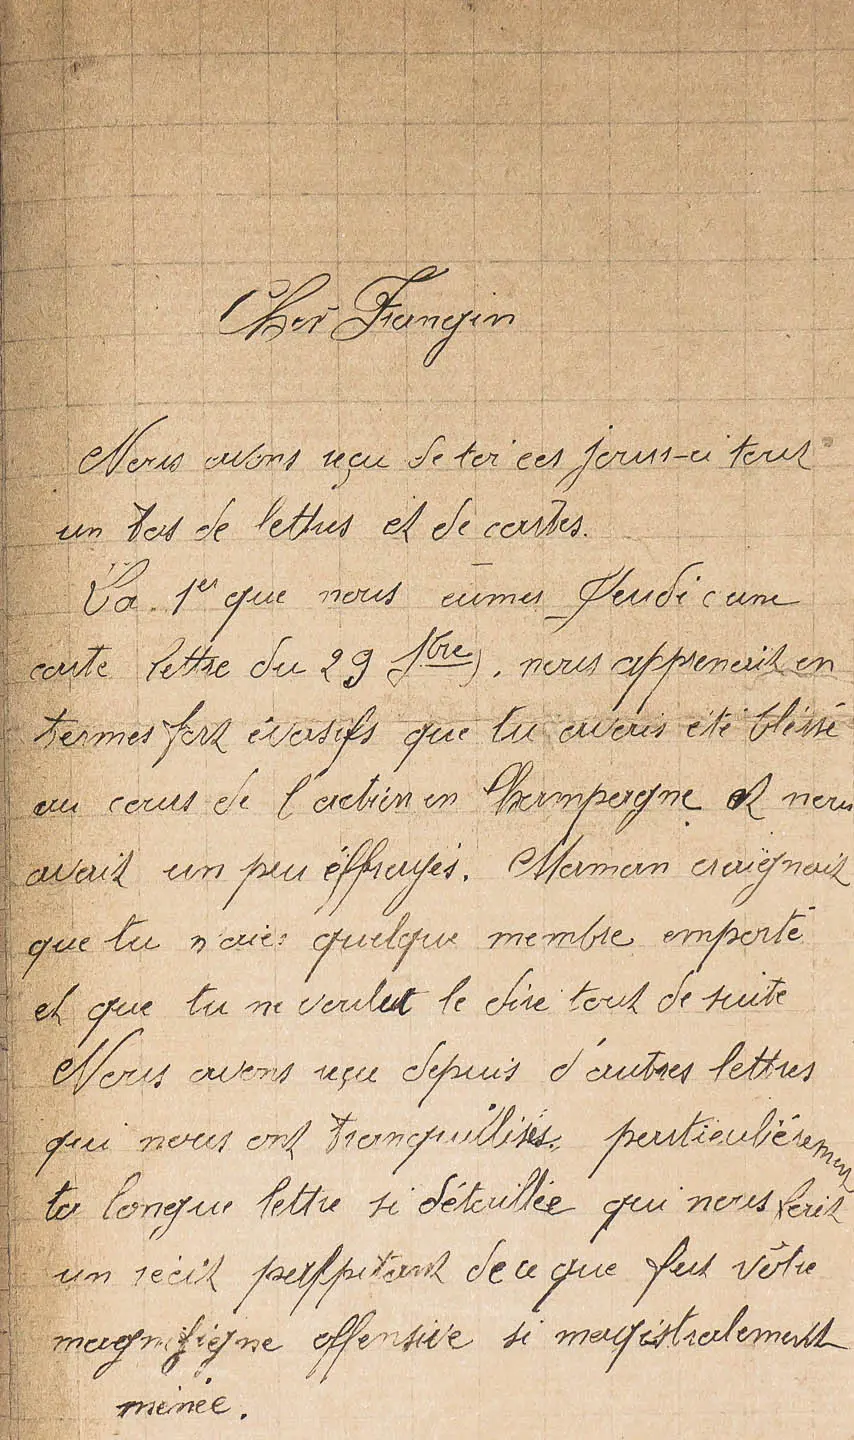 Cher Frangin
Nous avons reçu de toi ces jours-ci tout
un tas de lettres et de cartes.
La 1er que nous eûmes Jeudi (une
carte lettre du 29 7bre), nous apprenait en
termes fort évasifs que tu avais été bléssé
au cours de l'action en Champagne et nous
avait un peu éffrayés. Maman craignait
que tu n'aies quelque membre emporté
et que tu ne veulut le dire tout de suite
Nous avons reçu depuis d'autres lettres
qui nous ont tranquillisés, particuliérement
ta longue lettre si détaillée qui nous fait
un récit palpitant de ce que fut vôtre
magnifique offensive si magistralement
menée.